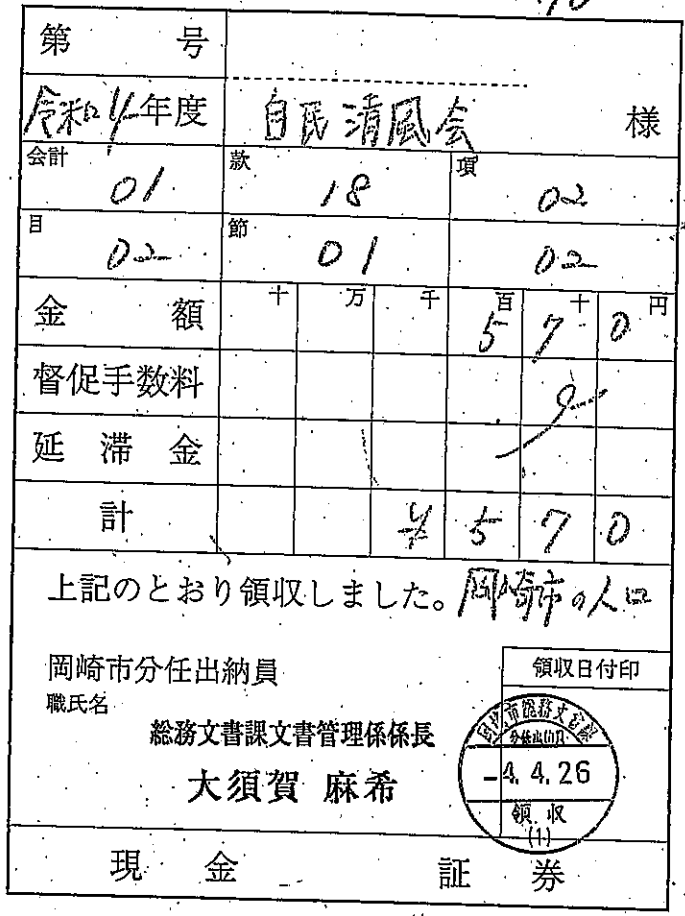 第 号
令和4年度 自民清風会 様
会計 01 款 18 項 02
目 02 節 01 02
金額 十 万 千 百 十 円
5 7 0
督促手数料
延滞金
計 ¥ 5 7 0
上記のとおり領収しました。岡崎市の人口
岡崎市分任出納員
職氏名
総務文書課文書管理係係長
大須賀 麻希
領収日付印
岡崎市総務文書課
分任出納員
-4.4.26
領収
(1)
現金 証券